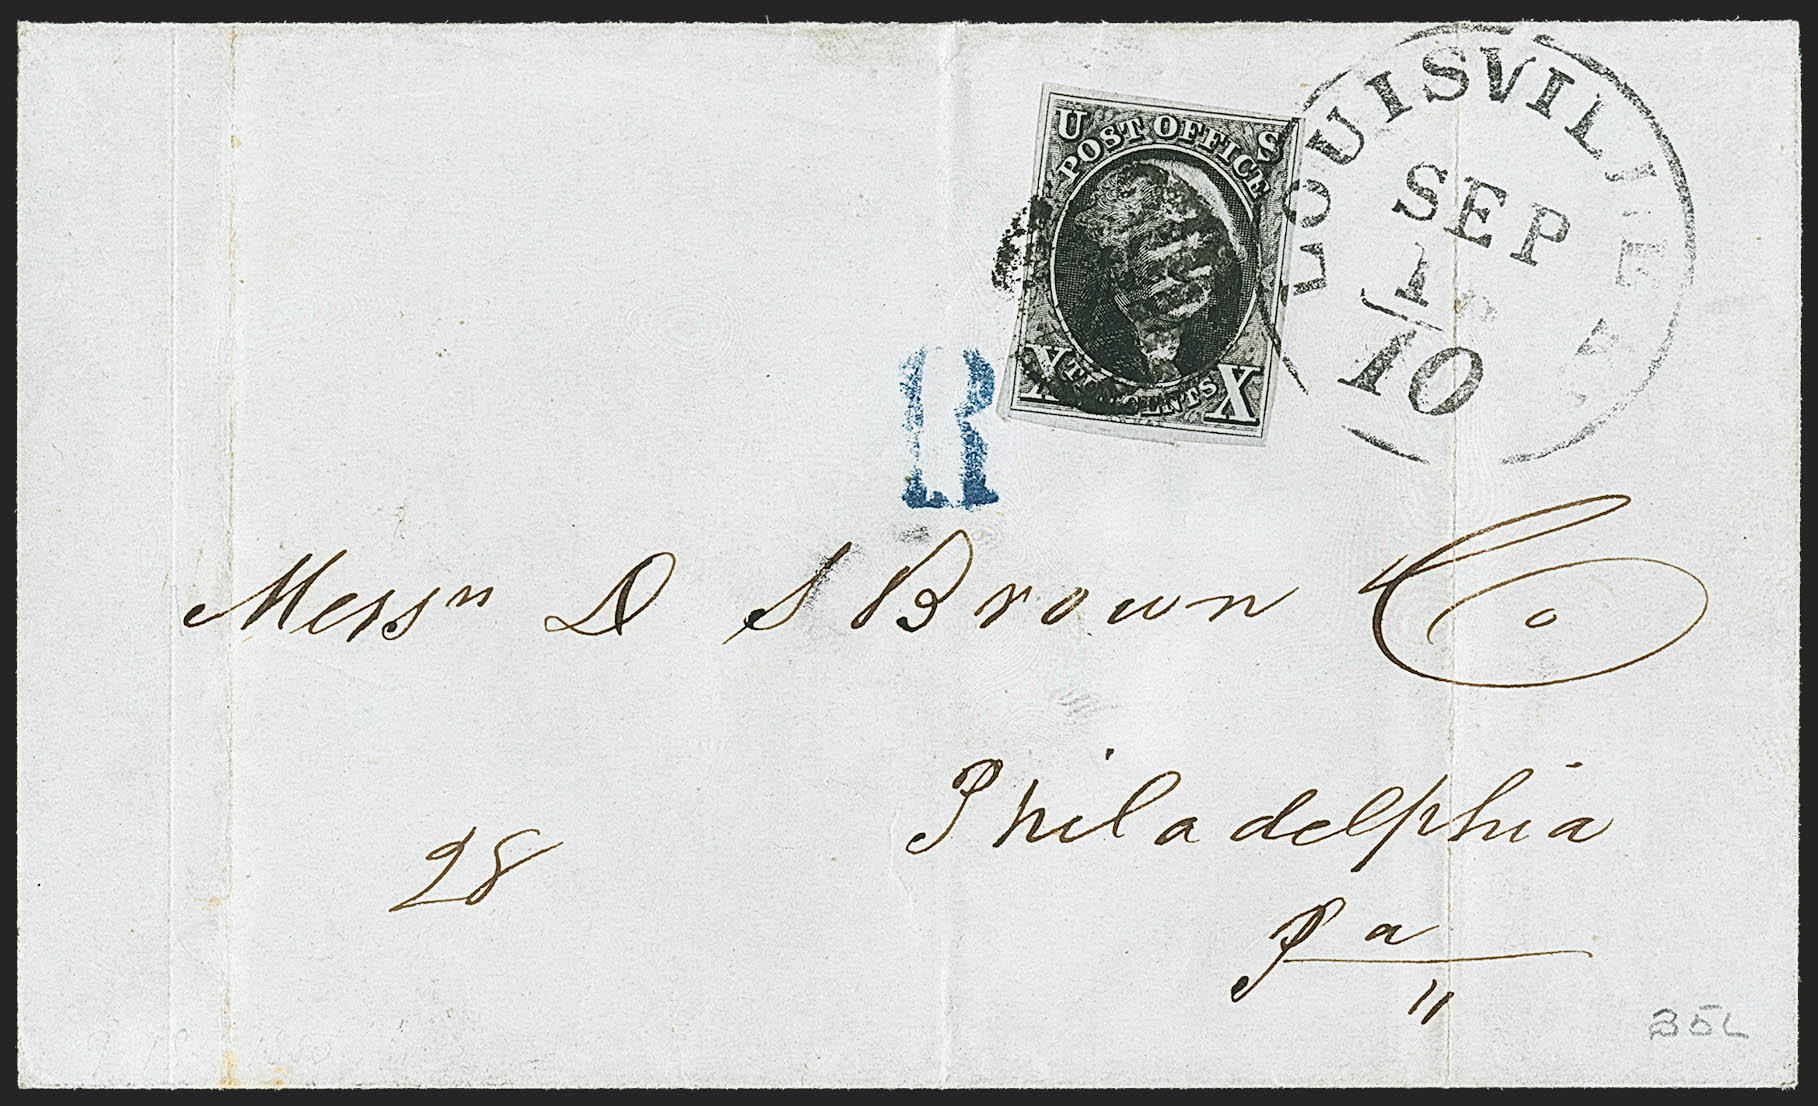 U S
POST OFFICE
X CENTS X
LOUISVILLE
SEP
10
R
Messrs D S Brown Co
28
Philadelphia
Pa
"